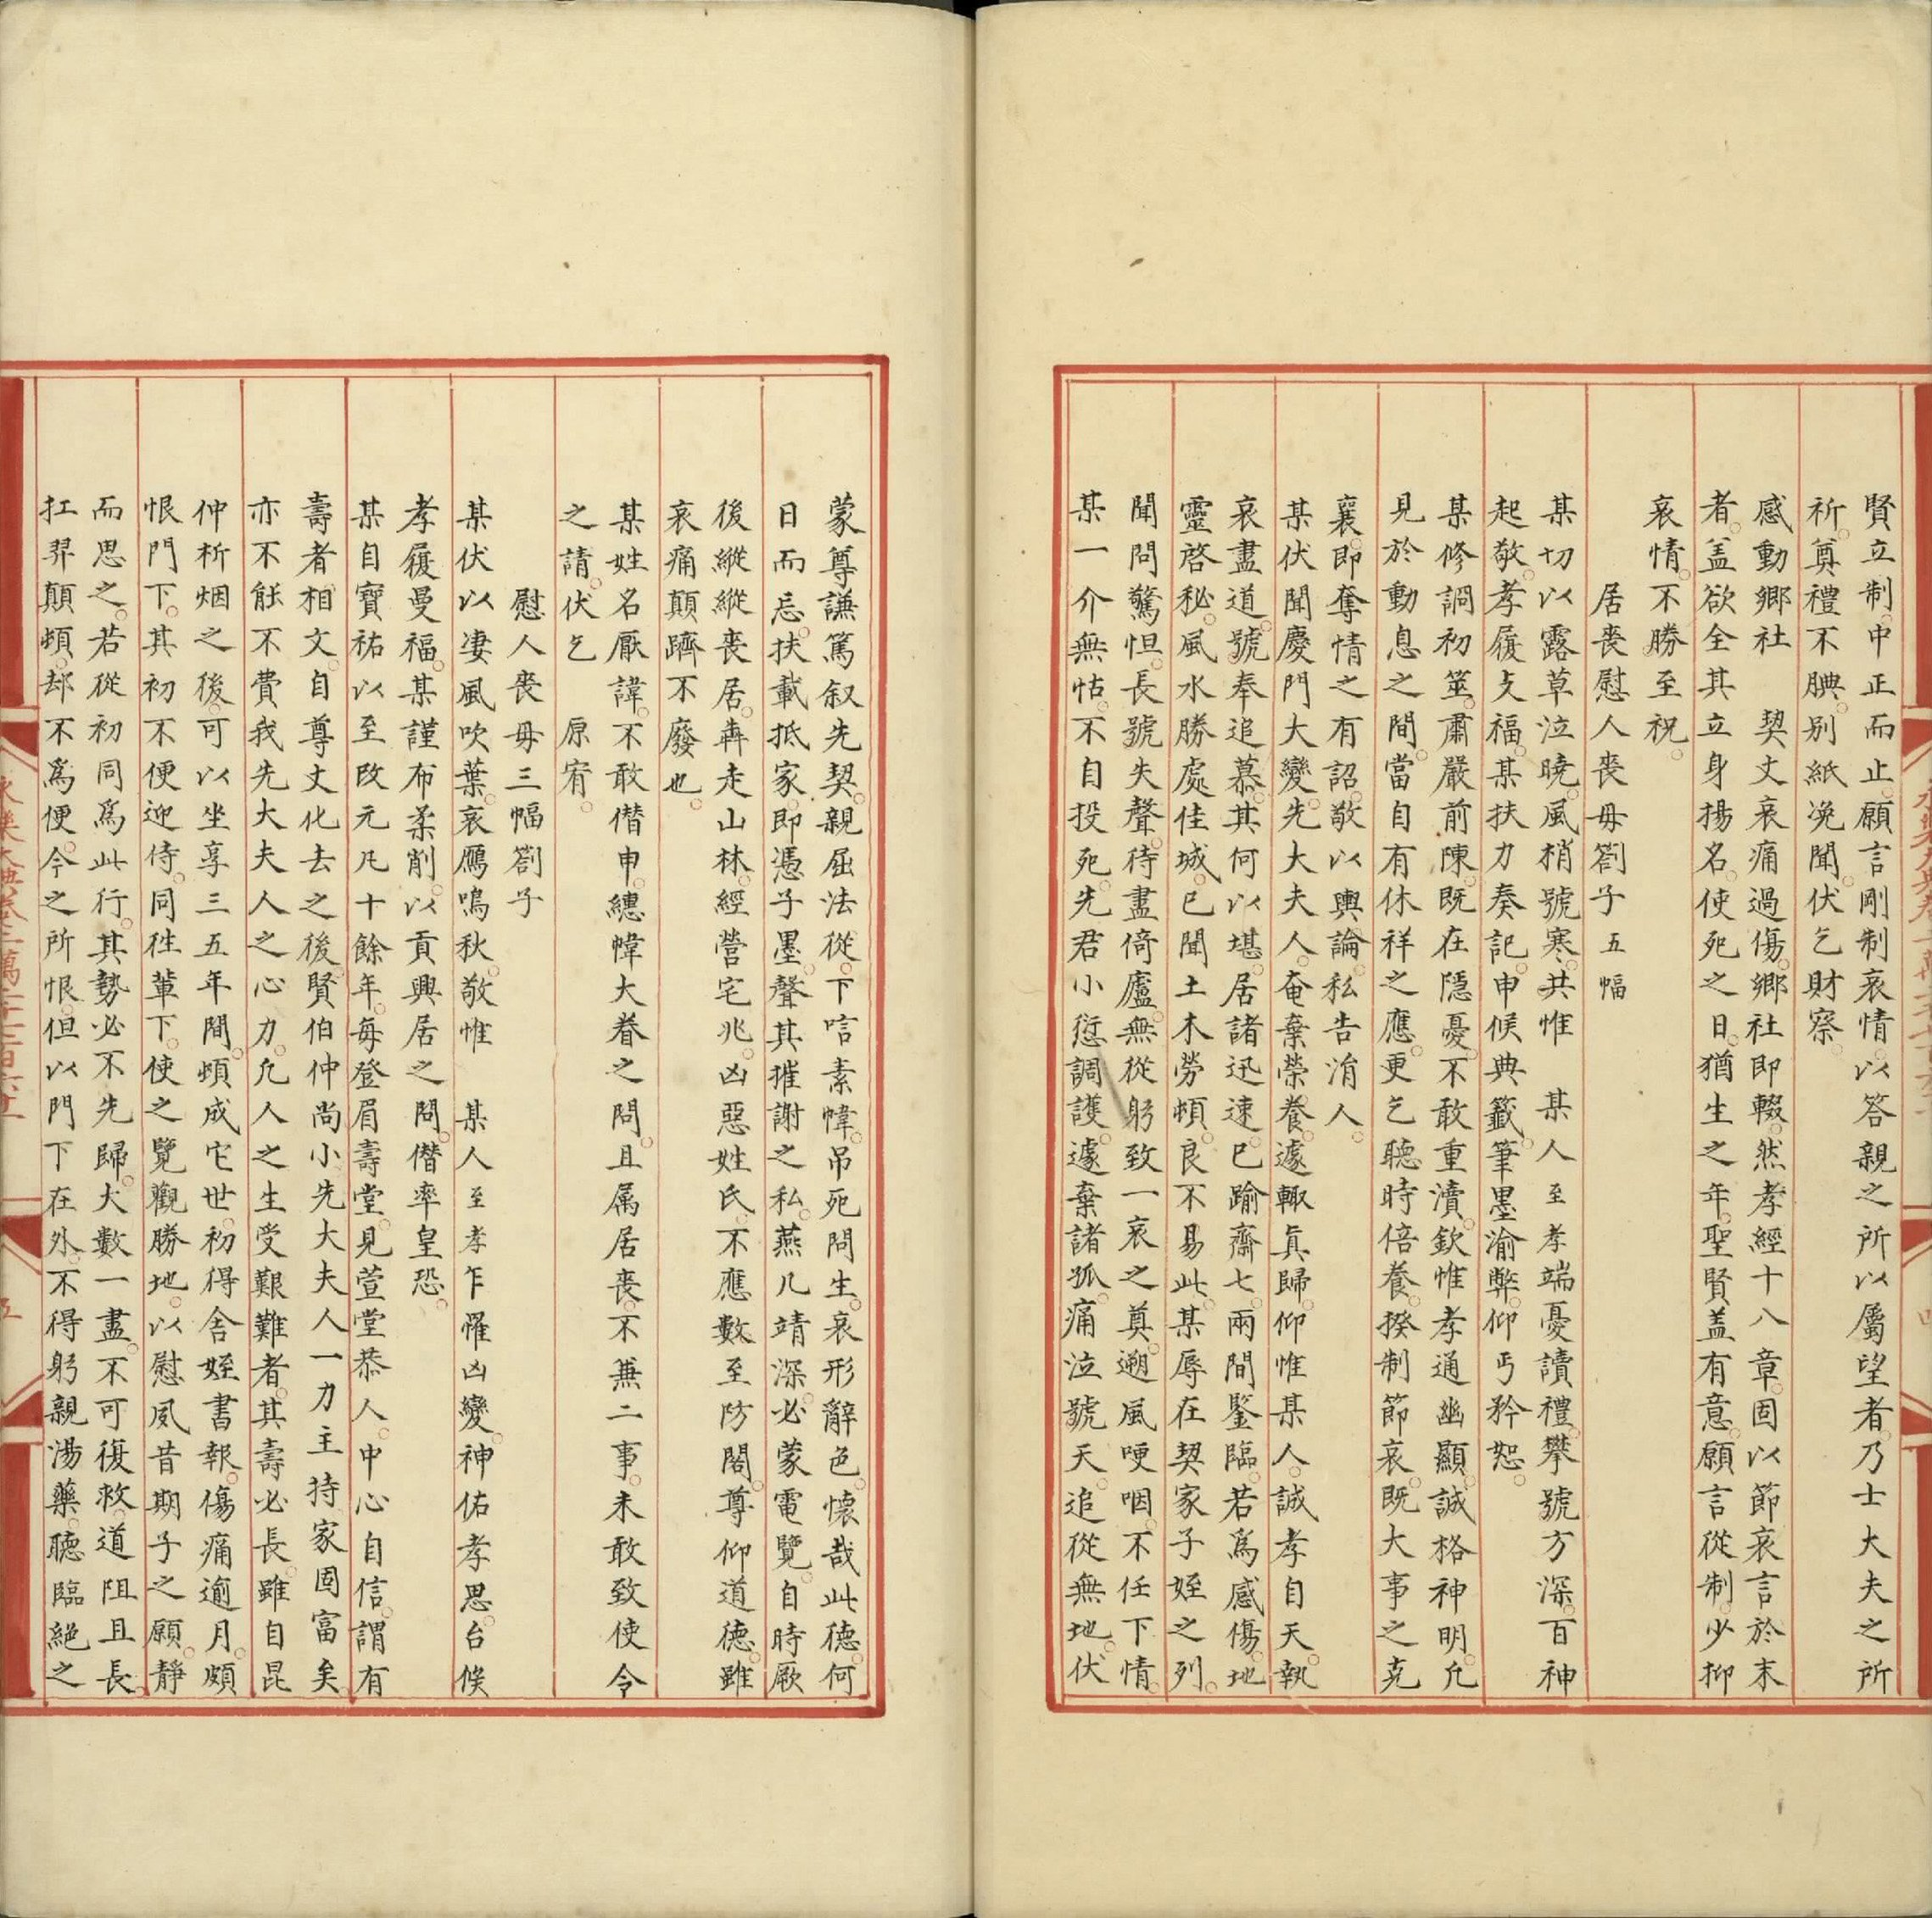 賢立制。中正而止。願言剛制哀情。以答親之所以屬望者。乃士大夫之所
祈。奠禮不腆。别紙凂聞。伏乞財察。
感動鄉社　契丈哀痛過傷。鄉社即輟。然孝經十八章。固以節哀言於末
者。盖欲全其立身揚名。使死之日。猶生之年。聖賢盖有意。願言從制。少抑
哀情。不勝至祝。
居喪慰人喪毋劄子五幅
某切以露草泣曉。風梢號寒。共惟　某人至孝端憂讀禮。攀號方深。百神
起敬。孝履支福。某扶力奏記。申候典籖。筆墨渝弊。仰丐矜恕。
某修詷初筮。肅嚴前陳。既在隱憂。不敢重瀆。欽惟孝通幽顯。誠格神明。允
見於動息之間。當自有休祥之應。更乞聽時倍養。揆制節哀。既大事之克
襄。即奪情之有詔。敬以輿論。私告涓人。
某伏聞慶門大變。先大夫人。奄棄榮養。遽輙眞歸。仰惟某人。誠孝自天。執
哀盡道。號奉追慕。其何以堪。居諸迅速。已踰齋七。兩間鑒臨。若爲感傷。地
靈啓秘。風水勝處佳城。已聞土木勞頓。良不易此。某辱在契家子姪之列。
聞問驚怛。長號失聲。待盡倚廬。無從躬致一哀之奠。遡風哽咽。不任下情。
某一介無怙。不自投死。先君小愆調護。遽棄諸孤。痛泣號天。追從無地。伏
蒙尊謙篤叙先契。親屈法從。下唁素幃。吊死問生。哀形辭色。懷哉此德。何
日而忘。扶載抵家。即憑子墨。聲其摧謝之私。燕几靖深。必蒙電覽。自時厥
後。縱縱喪居。犇走山林。經營宅兆。凶惡姓氏。不應數至防閤。尊仰道德。雖
哀痛顛躋不廢也。
某姓名厭諱。不敢僭申。繐幃大眷之問。且属居喪。不兼二事。未敢致使令
之請。伏乞　原宥。
慰人喪毋三幅劄子
某伏以淒風吹葉。哀鴈鳴秋。敬惟　某人至孝乍罹凶變。神佑孝思。台候
孝履曼福。某謹布柔削。以貢興居之問。僭率皇恐。
某自寶祐以至改元凡十餘年。每登眉壽堂。見萱堂恭人。中心自信。謂有
壽者相。丈自尊丈化去之後。賢伯仲尚小。先大夫人一力主持家。固富矣。
亦不能不費我先大夫人之心力。凢人之生受艱難者。其壽必長。雖自昆
仲析烟之後。可以坐享三五年間。頓成它世。初得舍姪書報。傷痛逾月。頗
恨門下。其初不便迎侍。同徃輦下。使之覽觀勝地。以慰夙昔期子之願。靜
而思之。若從初同爲此行。其勢必不先歸。大數一盡。不可復救。道阻且長。
扛舁顛頓。却不爲便。今之所恨。但以門下在外。不得躬親湯藥。聽臨絕之